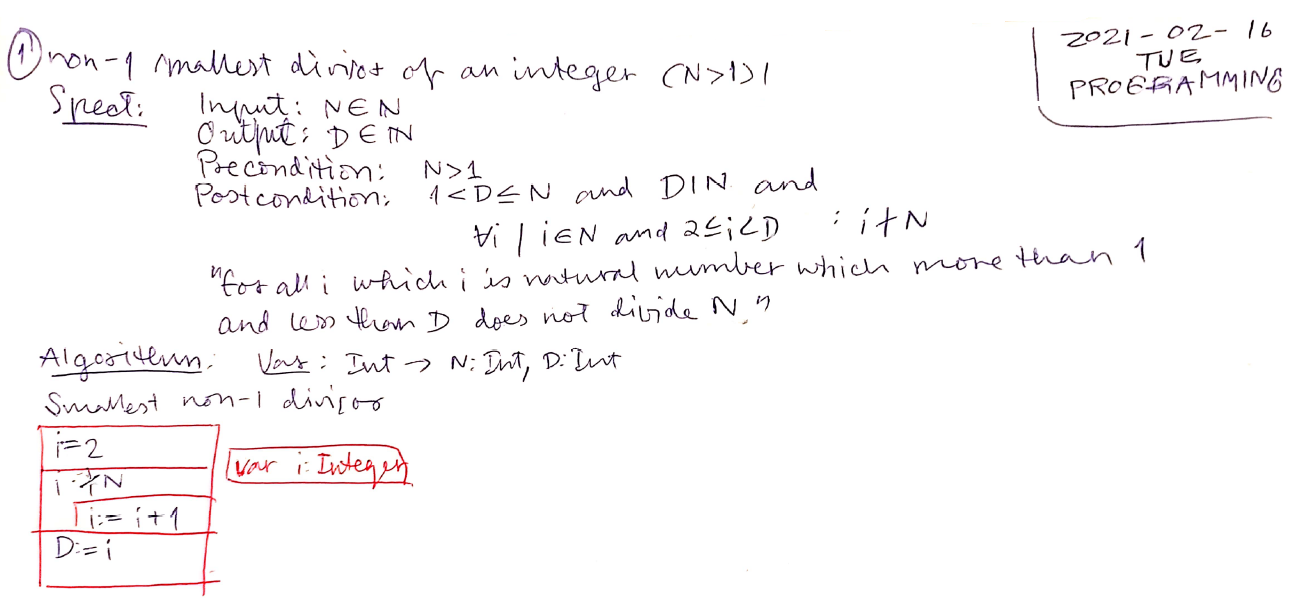 ① non-1 smallest divisor of an integer (N>1)!
2021-02-16
TUE
PROGRAMMING
Specif:
Input: N∈ℕ
Output: D∈ℕ
Precondition: N>1
Postcondition: 1<D≤N and D|N and
∀i / i∈N and 2≤i<D : i∤N
"for all i which i is natural number which more than 1
and less than D does not divide N."
Algorithm: Var: Int → N: Int, D: Int
Smallest non-1 divisor
i=2
var i: Integer
i ∤ N
i:=i+1
D:=i